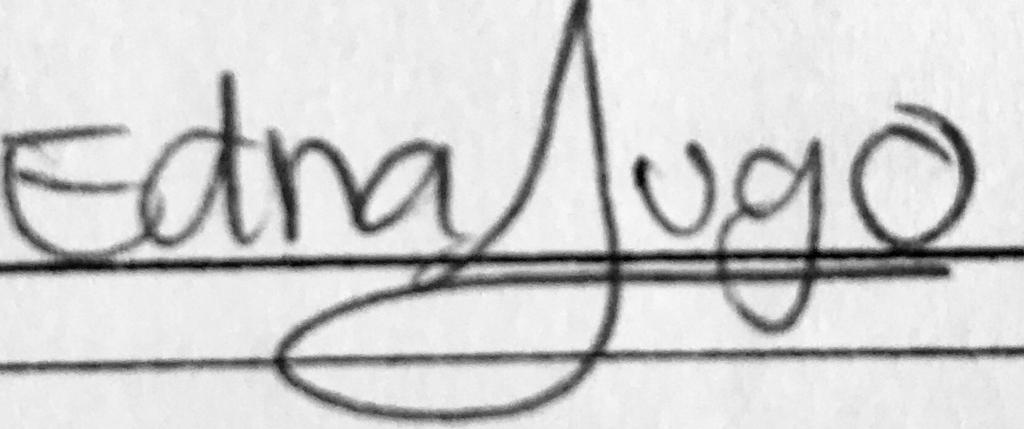 Edna Jugo